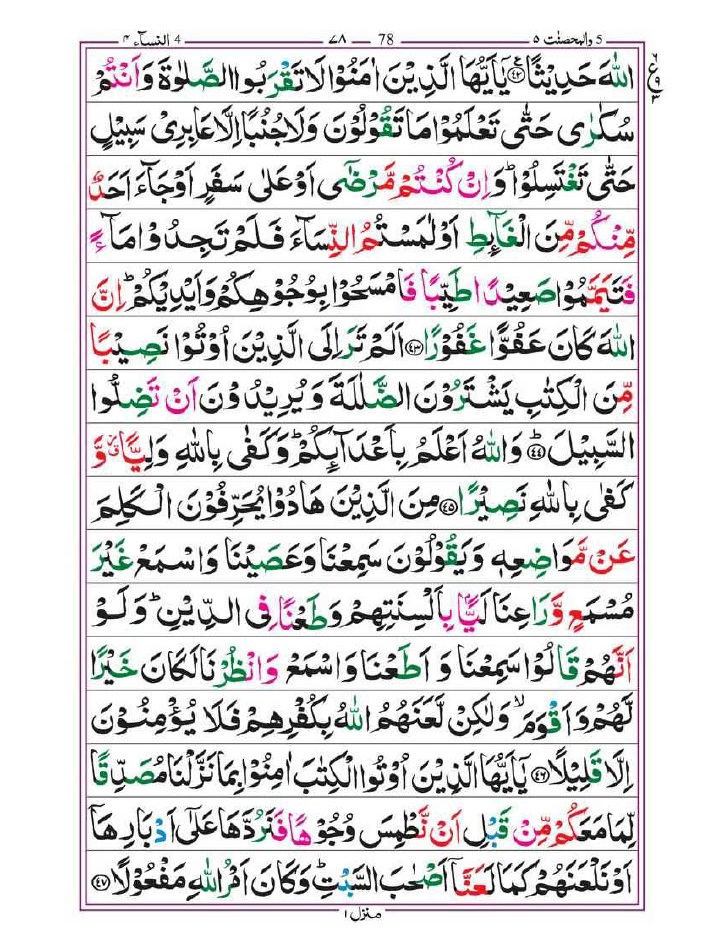 5 والمحصنٰت ۵
78 ۷۸
4 النسآء ۴
اللّٰهَ حَدِیْثًا۠ ﴿۴۲﴾ یٰۤاَیُّهَا الَّذِیْنَ اٰمَنُوْا لَا تَقْرَبُوا الصَّلٰوةَ وَ اَنْتُمْ
سُكٰرٰى حَتّٰى تَعْلَمُوْا مَا تَقُوْلُوْنَ وَ لَا جُنُبًا اِلَّا عَابِرِیْ سَبِیْلٍ
حَتّٰى تَغْتَسِلُوْا ؕ وَ اِنْ كُنْتُمْ مَّرْضٰۤى اَوْ عَلٰى سَفَرٍ اَوْ جَآءَ اَحَدٌ
مِّنْكُمْ مِّنَ الْغَآىٕطِ اَوْ لٰمَسْتُمُ النِّسَآءَ فَلَمْ تَجِدُوْا مَآءً
فَتَیَمَّمُوْا صَعِیْدًا طَیِّبًا فَامْسَحُوْا بِوُجُوْهِكُمْ وَ اَیْدِیْكُمْ ؕ اِنَّ
اللّٰهَ كَانَ عَفُوًّا غَفُوْرًا ﴿۴۳﴾ اَلَمْ تَرَ اِلَى الَّذِیْنَ اُوْتُوْا نَصِیْبًا
مِّنَ الْكِتٰبِ یَشْتَرُوْنَ الضَّلٰلَةَ وَ یُرِیْدُوْنَ اَنْ تَضِلُّوا
السَّبِیْلَ ؕ ﴿۴۴﴾ وَ اللّٰهُ اَعْلَمُ بِاَعْدَآىٕكُمْ ؕ وَ كَفٰى بِاللّٰهِ وَلِیًّا ۗۙ وَّ
كَفٰى بِاللّٰهِ نَصِیْرًا ﴿۴۵﴾ مِنَ الَّذِیْنَ هَادُوْا یُحَرِّفُوْنَ الْكَلِمَ
عَنْ مَّوَاضِعِهٖ وَ یَقُوْلُوْنَ سَمِعْنَا وَ عَصَیْنَا وَ اسْمَعْ غَیْرَ
مُسْمَعٍ وَّ رَاعِنَا لَیًّۢا بِاَلْسِنَتِهِمْ وَ طَعْنًا فِی الدِّیْنِ ؕ وَ لَوْ
اَنَّهُمْ قَالُوْا سَمِعْنَا وَ اَطَعْنَا وَ اسْمَعْ وَ انْظُرْنَا لَكَانَ خَیْرًا
لَّهُمْ وَ اَقْوَمَ ۙ وَ لٰكِنْ لَّعَنَهُمُ اللّٰهُ بِكُفْرِهِمْ فَلَا یُؤْمِنُوْنَ
اِلَّا قَلِیْلًا ﴿۴۶﴾ یٰۤاَیُّهَا الَّذِیْنَ اُوْتُوا الْكِتٰبَ اٰمِنُوْا بِمَا نَزَّلْنَا مُصَدِّقًا
لِّمَا مَعَكُمْ مِّنْ قَبْلِ اَنْ نَّطْمِسَ وُجُوْهًا فَنَرُدَّهَا عَلٰۤى اَدْبَارِهَاۤ
اَوْ نَلْعَنَهُمْ كَمَا لَعَنَّاۤ اَصْحٰبَ السَّبْتِ ؕ وَ كَانَ اَمْرُ اللّٰهِ مَفْعُوْلًا ﴿۴۷﴾
منزل ۱